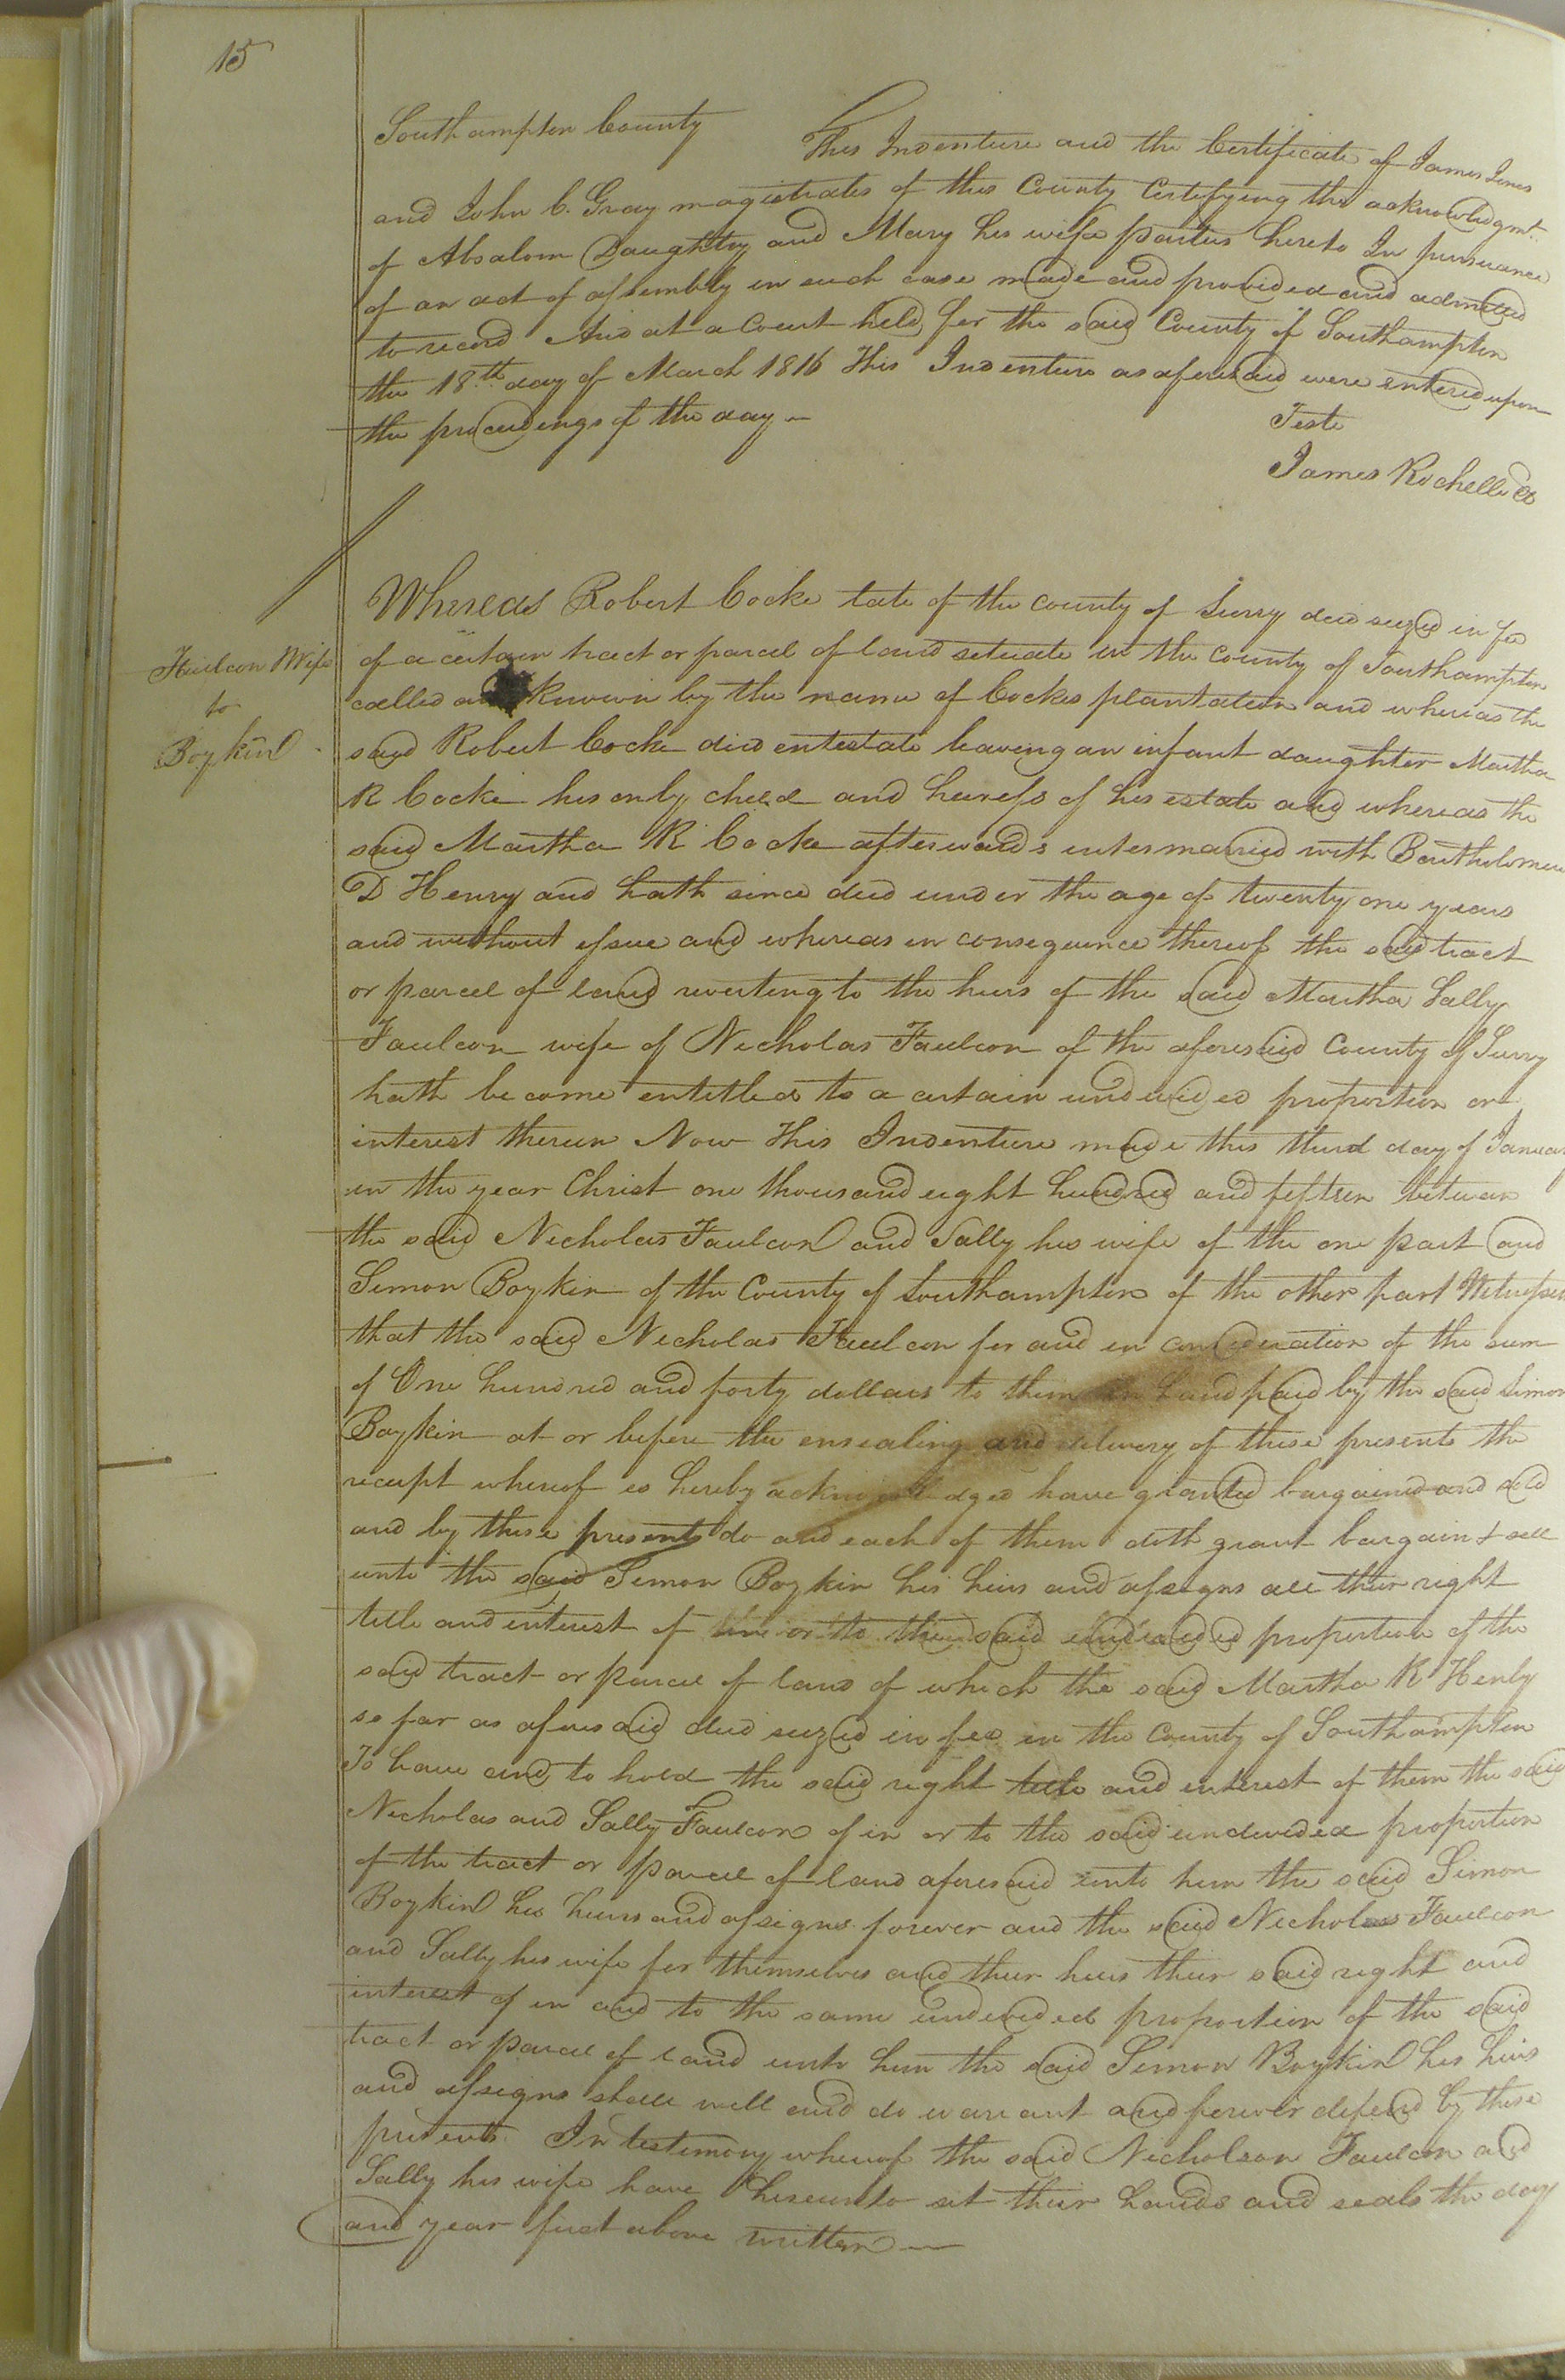 15
Southampton County This Indenture and the Certificate of James Jones
and John C. Gray magistrates of this County Certifying the acknowledgmt.
of Absalom Daughtry and Mary his wife parties hereto In pursuance
of an act of assembly in such case made and provided and admitted
to record And at a Court held for the said County of Southampton
the 18th day of March 1816 This Indenture as aforesaid were entered upon
the proceedings of the day
Teste
James Rochelle
Whereas Robert Cocke late of the county of Surry died seized in fee
of a certain tract or parcel of land situate in the County of Southampton
called and known by the name of Cockes plantation and whereas the
said Robert Cocke died intestate leaving an infant daughter Martha
R Cocke his only child and heiress of his estate and whereas the
said Martha R Cocke afterwards intermarried with Bartholomew
D Henry and hath since died under the age of twenty one years
and without issue and whereas in consequence thereof the said tract
or parcel of land reverting to the heirs of the said Martha Sally
Faulcon wife of Nicholas Faulcon of the aforesaid County of Surry
hath become entitled to a certain undivided proportion or
interest therein Now This Indenture made this third day of January
in the year Christ one thousand eight hundred and fifteen between
the said Nicholas Faulcon and Sally his wife of the one part and
Simon Boykin of the County of Southampton of the other part Witnesseth
that the said Nicholas Faulcon for and in consideration of the sum
of One hundred and forty dollars to them in hand paid by the said Simon
Boykin at or before the ensealing and delivery of these presents the
receipt whereof is hereby acknowledged have granted bargained and sold
and by these presents do and each of them doth grant bargain & sell
unto the said Simon Boykin his heirs and assigns all their right
title and interest of in or to the said undivided proportion of the
said tract or parcel of land of which the said Martha R Henly
so far as aforesaid died seized in fee in the County of Southampton
To have and to hold the said right title and interest of them the said
Nicholas and Sally Faulcon of in or to the said undivided proportion
of the tract or parcel of land aforesaid unto him the said Simon
Boykin his heirs and assigns forever and the said Nicholas Faulcon
and Sally his wife for themselves and their heirs their said right and
interest of in and to the same undivided proportion of the said
tract or parcel of land unto him the said Simon Boykin his heirs
and assigns shall will and do warrant and forever defend by these
presents In testimony whereof the said Nicholson Faulcon and
Sally his wife have hereunto set their hands and seals the day
and year first above written
Faulcon Wife
to
Boykin